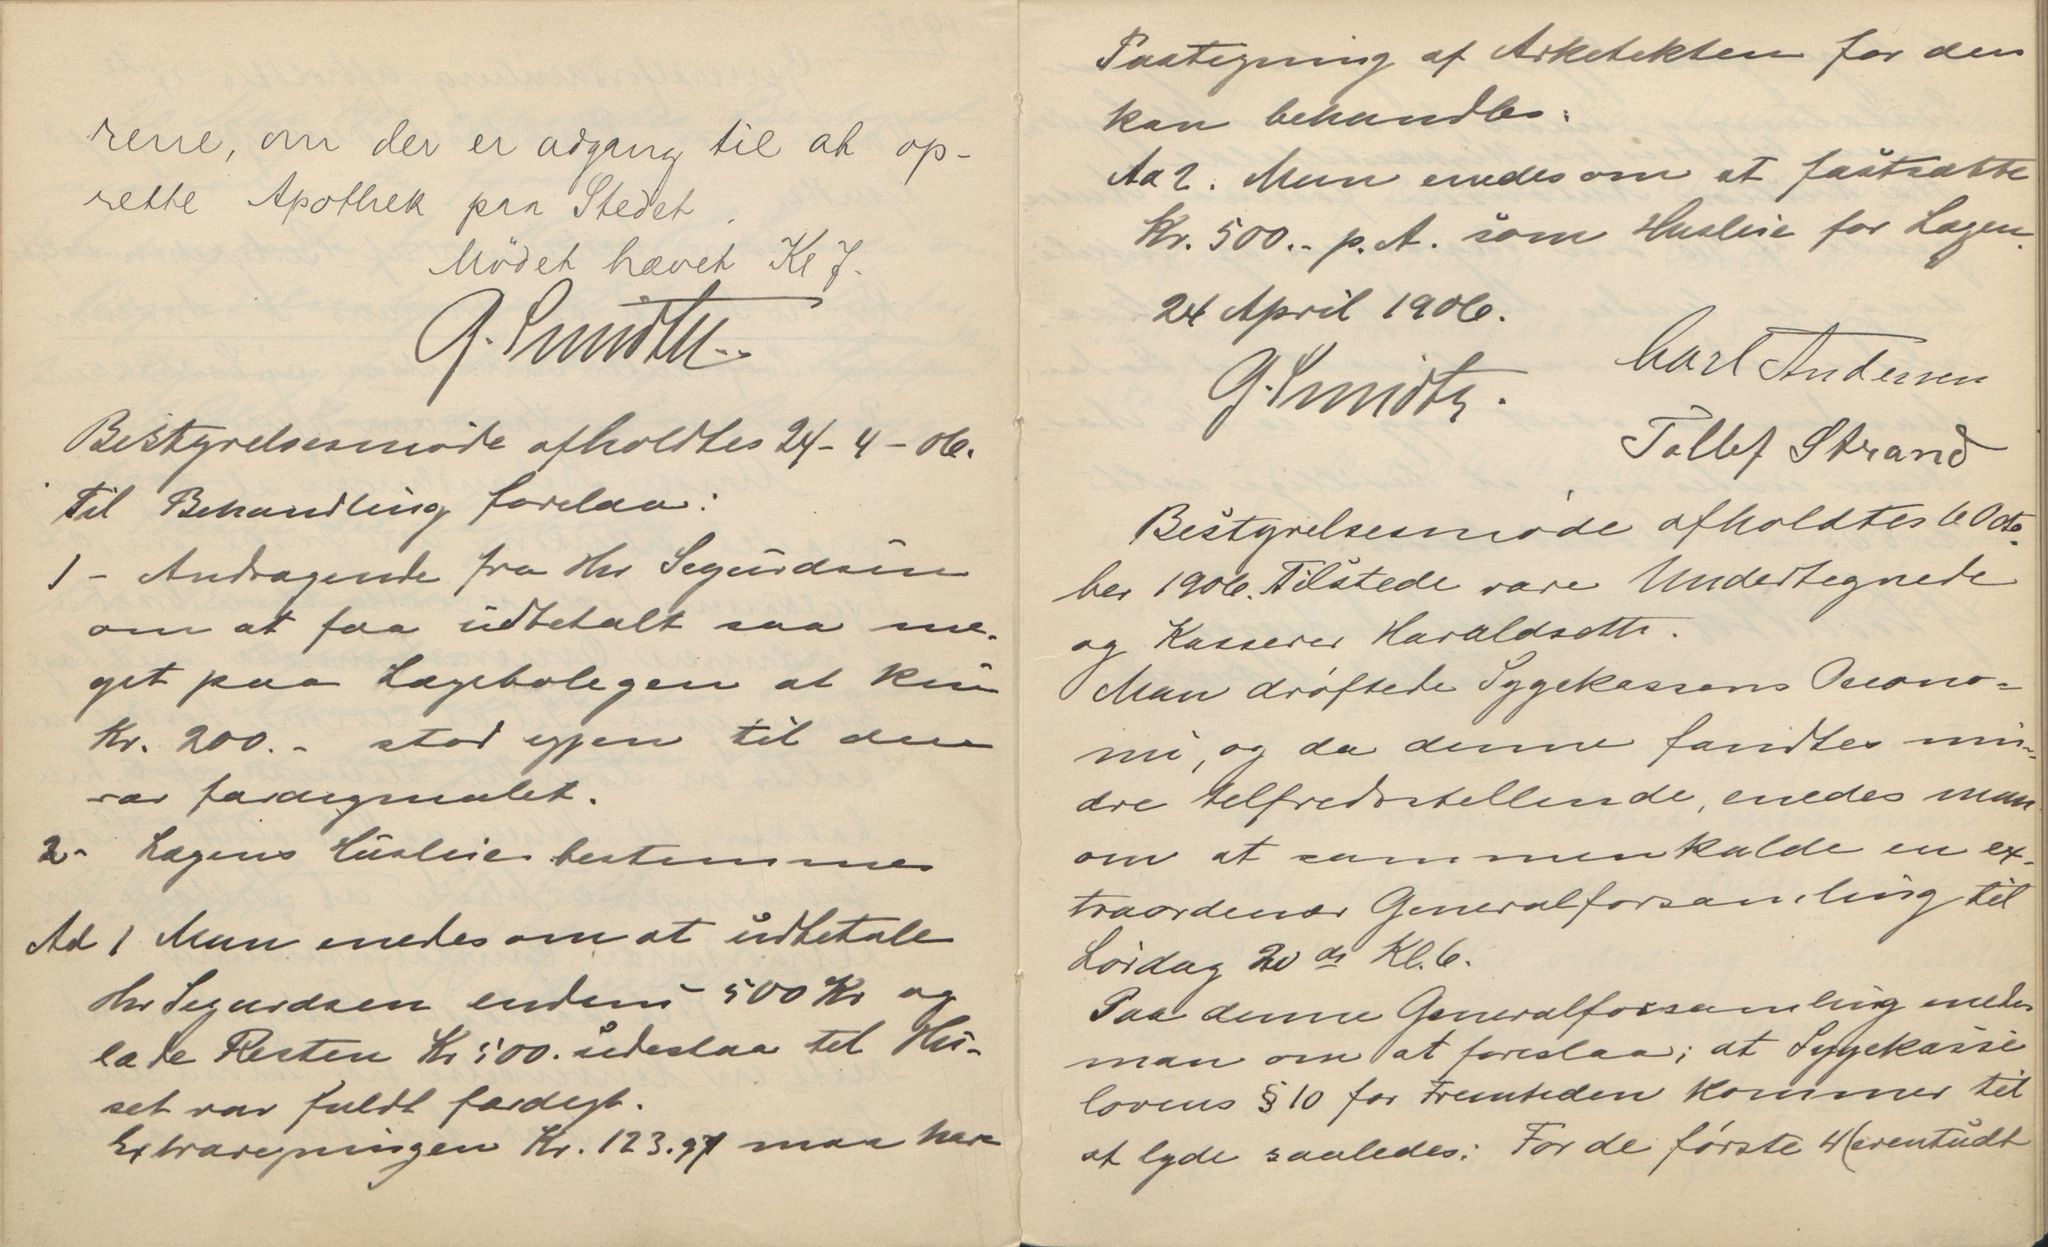 rene, om der er adgang til at op-
rette Apothek paa Stedet.
Mödet hævet Kl 7.
G. Smidth..
Bestyrelsesmøde afholdtes 24-4-06.
Til Behandling forelaa:
1 - Andragende fra Hr Segurdsen
om at faa udbetalt saa me-
get paa Lægebolegen at kun
Kr. 200.- stod igjen til den
var færdigmalet.
2- Lægens Husleie bestemmes
Ad 1 Man enedes om at udbetale
Hr Segurdsen endnu 500 Kr og
lade Resten Kr 500. udestaa tel Hu-
set var fuldt færdegt.
Extraregningen Kr. 123.97 maa have
Paategning af Arketekten før den
kan behandles.
Ad 2. Man enedes om at fastsætte
Kr. 500.- p. A. som Husleie for Lægen.
24 April 1906.
G. Smidth.
Carl Andersen
Tollef Strand
Bestyrelsesmøde afholdtes 6 Octo-
ber 1906. Tilstede vare Undertegnede
og Kasserer Haraldseth.
Man drøftede Sygekassens Oecono-
mi, og da denne fandtes min-
dre telfredsstellende, enedes man
om at sammenkalde en ex-
traordenær Generalforsamling til
Lørdag 20 ds Kl. 6.
Paa denne Generalforsamling enedes
man om at foreslaa; at Sygekasse
lovens § 10 for Fremteden kommer til
at lyde saaledes: For de første 4 (eventuelt